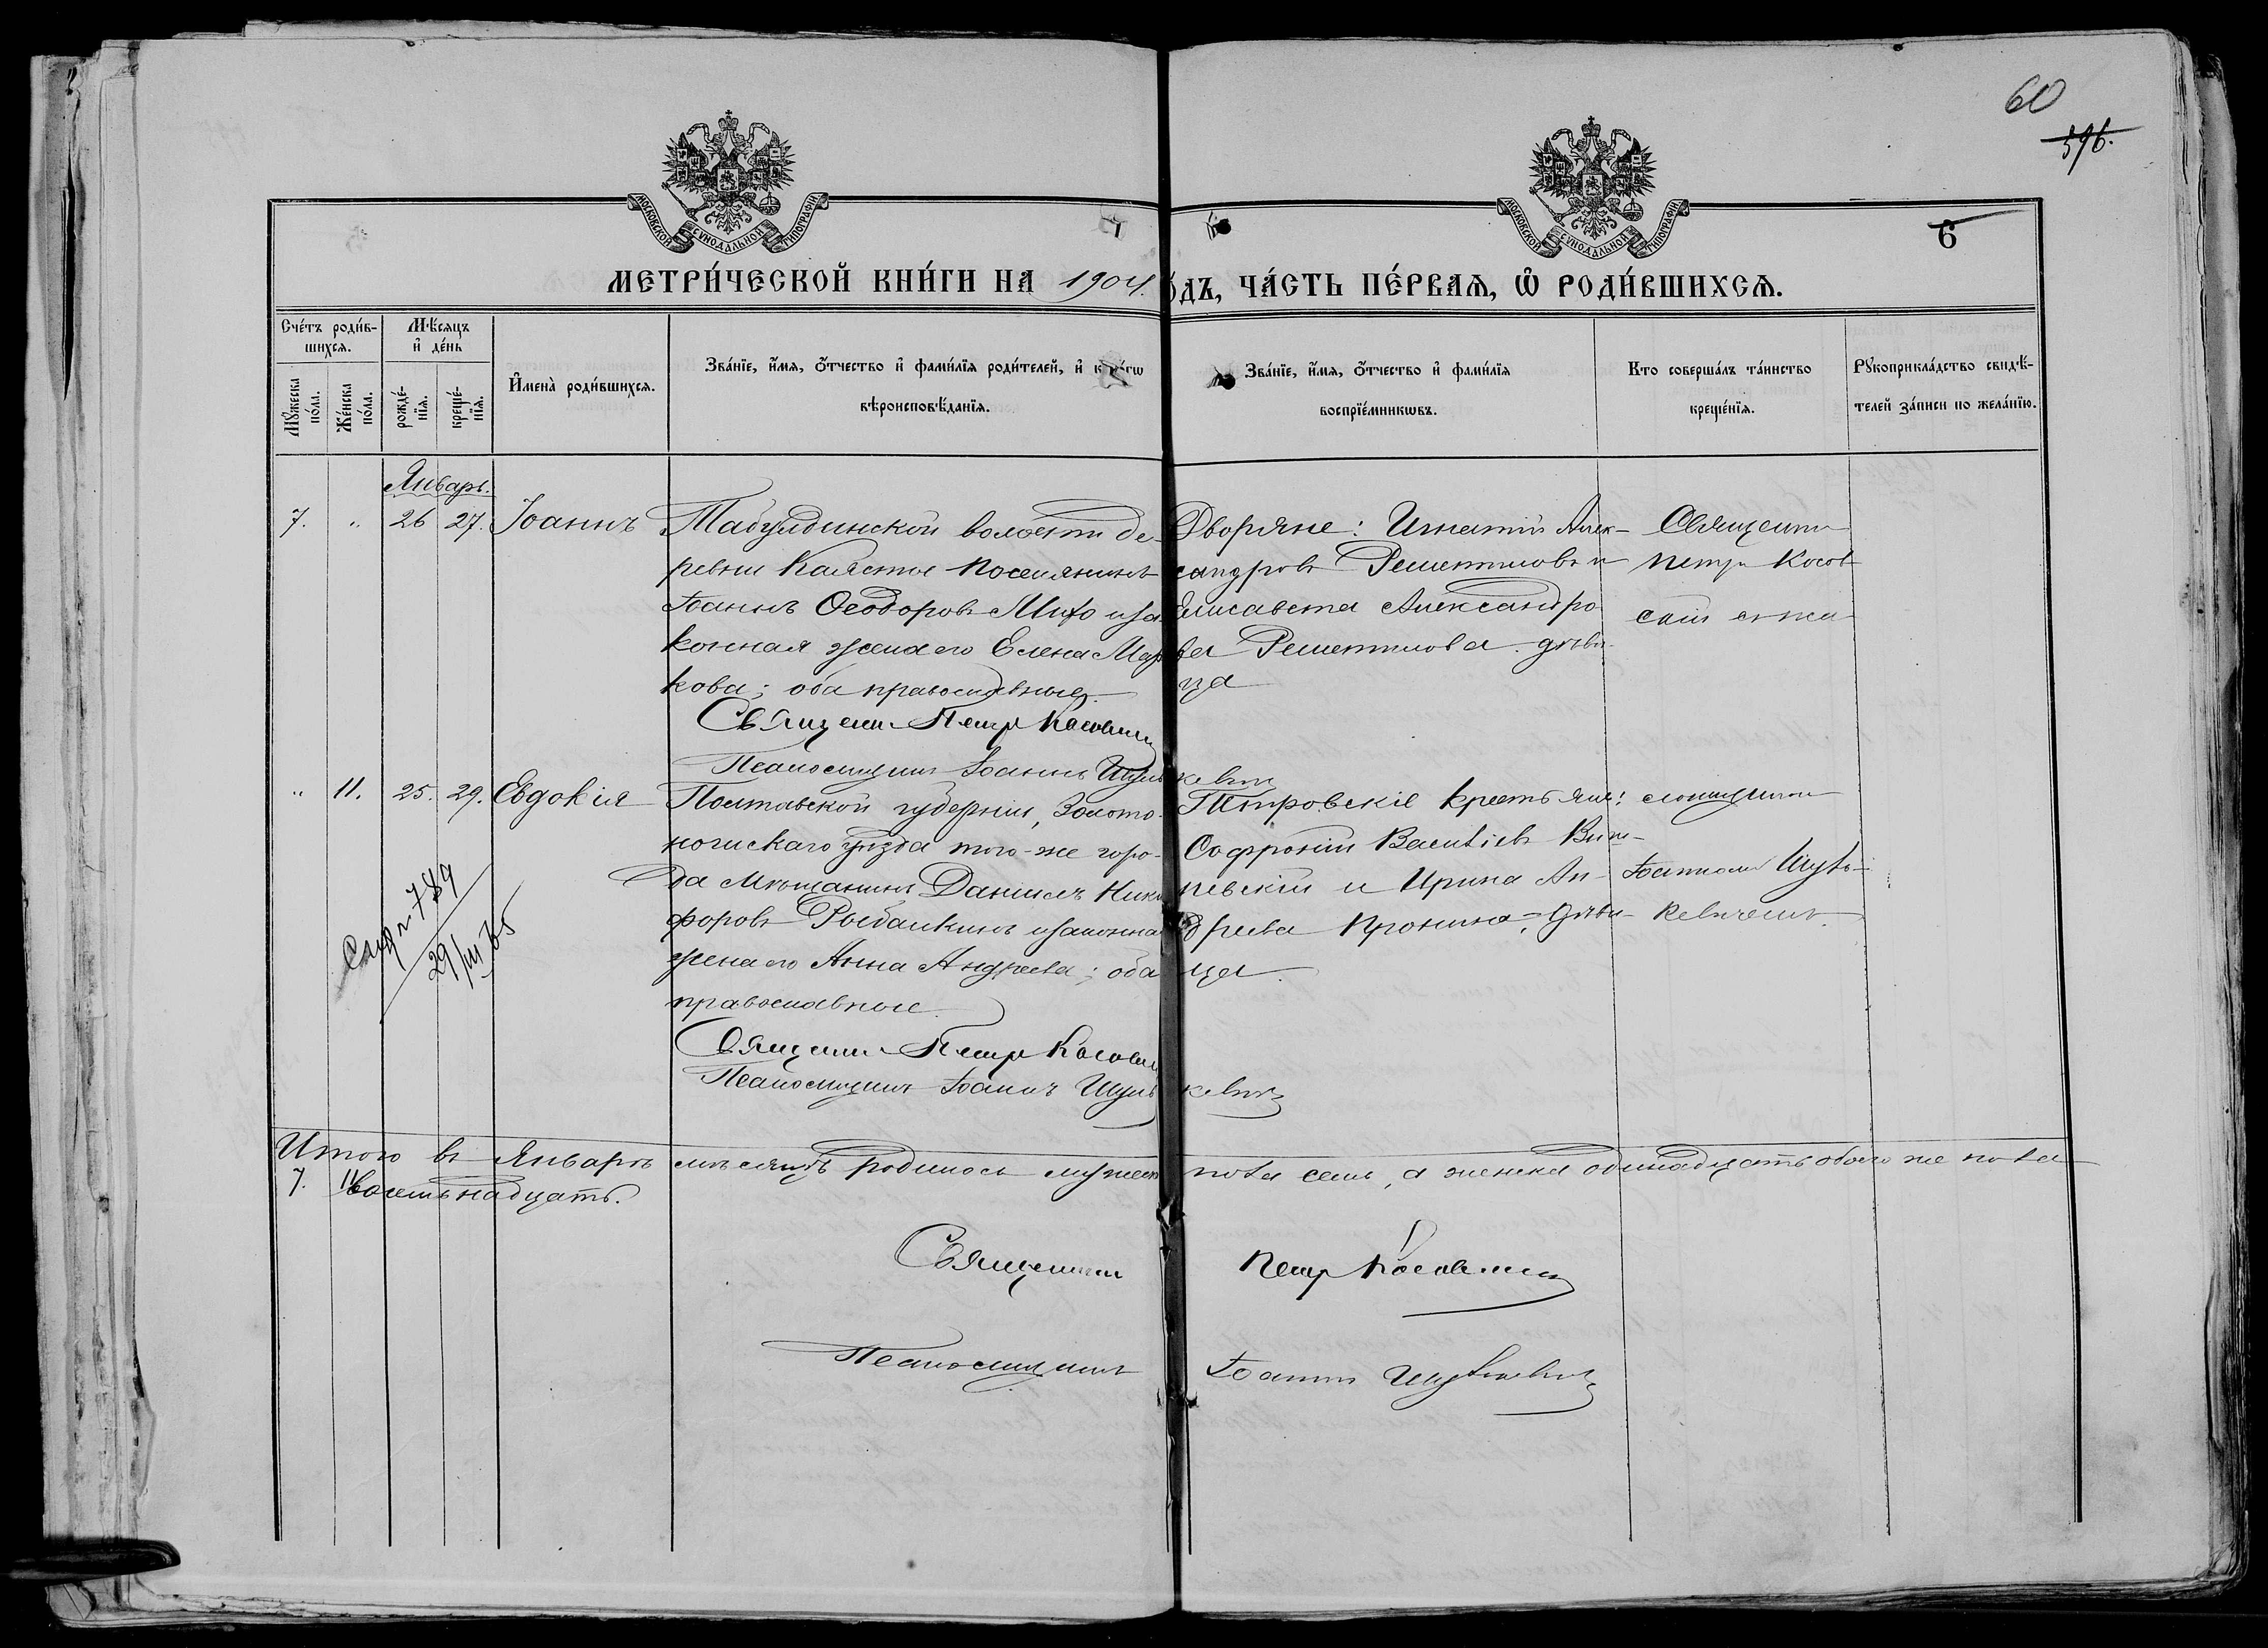 60
596.
МОСКОВСКОЙ СУНОДАЛЬНОЙ ТИПОГРАФІИ
МОСКОВСКОЙ СУНОДАЛЬНОЙ ТИПОГРАФІИ
6
МЕТРИ́ЧЕСКОЙ КНИ́ГИ НА 1904. О́ДЪ, ЧА́СТЬ ПЕ́РВАѦ, Ѿ РОДИ́ВШИХСѦ.
Сче́тъ роди́в-
шихсѧ.
Мѣ́сѧцъ
и де́нь
Мꙋ́жеска по́ла.
Же́нска по́ла.
рожде́-
нїѧ.
креще́-
нїѧ.
Имена̀ роди́вшихсѧ.
Зва́нїе, и́мѧ, о́тчество и фами́лїѧ роди́телей, и к
вѣроисповѣ́данїѧ.
Зва́нїе, и́мѧ, о́тчество и фами́лїѧ
воспрїе́мникѡвъ.
Кто соверша́лъ та́инство
креще́нїѧ.
Рꙋкоприкла́дство свидѣ́-
телей за́писи по жела́нїю.
Январь.
7. " 26 27. Іоаннъ
Табулдинской волости де-
ревни Каясты поселянинъ
Іоаннъ Ѳеодоровъ Михо и за-
конная жена его Елена Мар
кова; оба православные.
Священ. Петръ Косовскій
Псаломщикъ Іоаннъ Шуль кевичъ
Дворяне: Игнатій Алек-
сандровъ Решетиловъ и
Елисавета Александро
ва Решетилова дѣви-
ца
Священникъ
Петръ Косов
скій съ пса
" 11. 25. 29. Евдокія
Полтавской губерніи, Золото-
ношскаго уѣзда того-же горо-
да мѣщанинъ Даниилъ Ники
форовъ Рыбалкинъ и законная
жена его Анна Андреева; оба
православные.
Священ. Петръ Косовскій
Псаломщикъ Іоаннъ Шуль кевичъ
Петровскіе крестьяне:
Софроній Василіевъ Виш-
невскій и Ирина Ан-
дреева Пронина, дѣви-
ца.
ломщикомъ
Іоанномъ Шуль-
кевичемъ.
789
29/III 65
Итого въ Январѣ мѣсяцѣ родилось мужеск пола семь, а женска одинадцать обоего же пола
7. 11 восемьнадцать.
Священникъ Петръ Косовскій
Псаломщикъ Іоаннъ Шулькевичъ